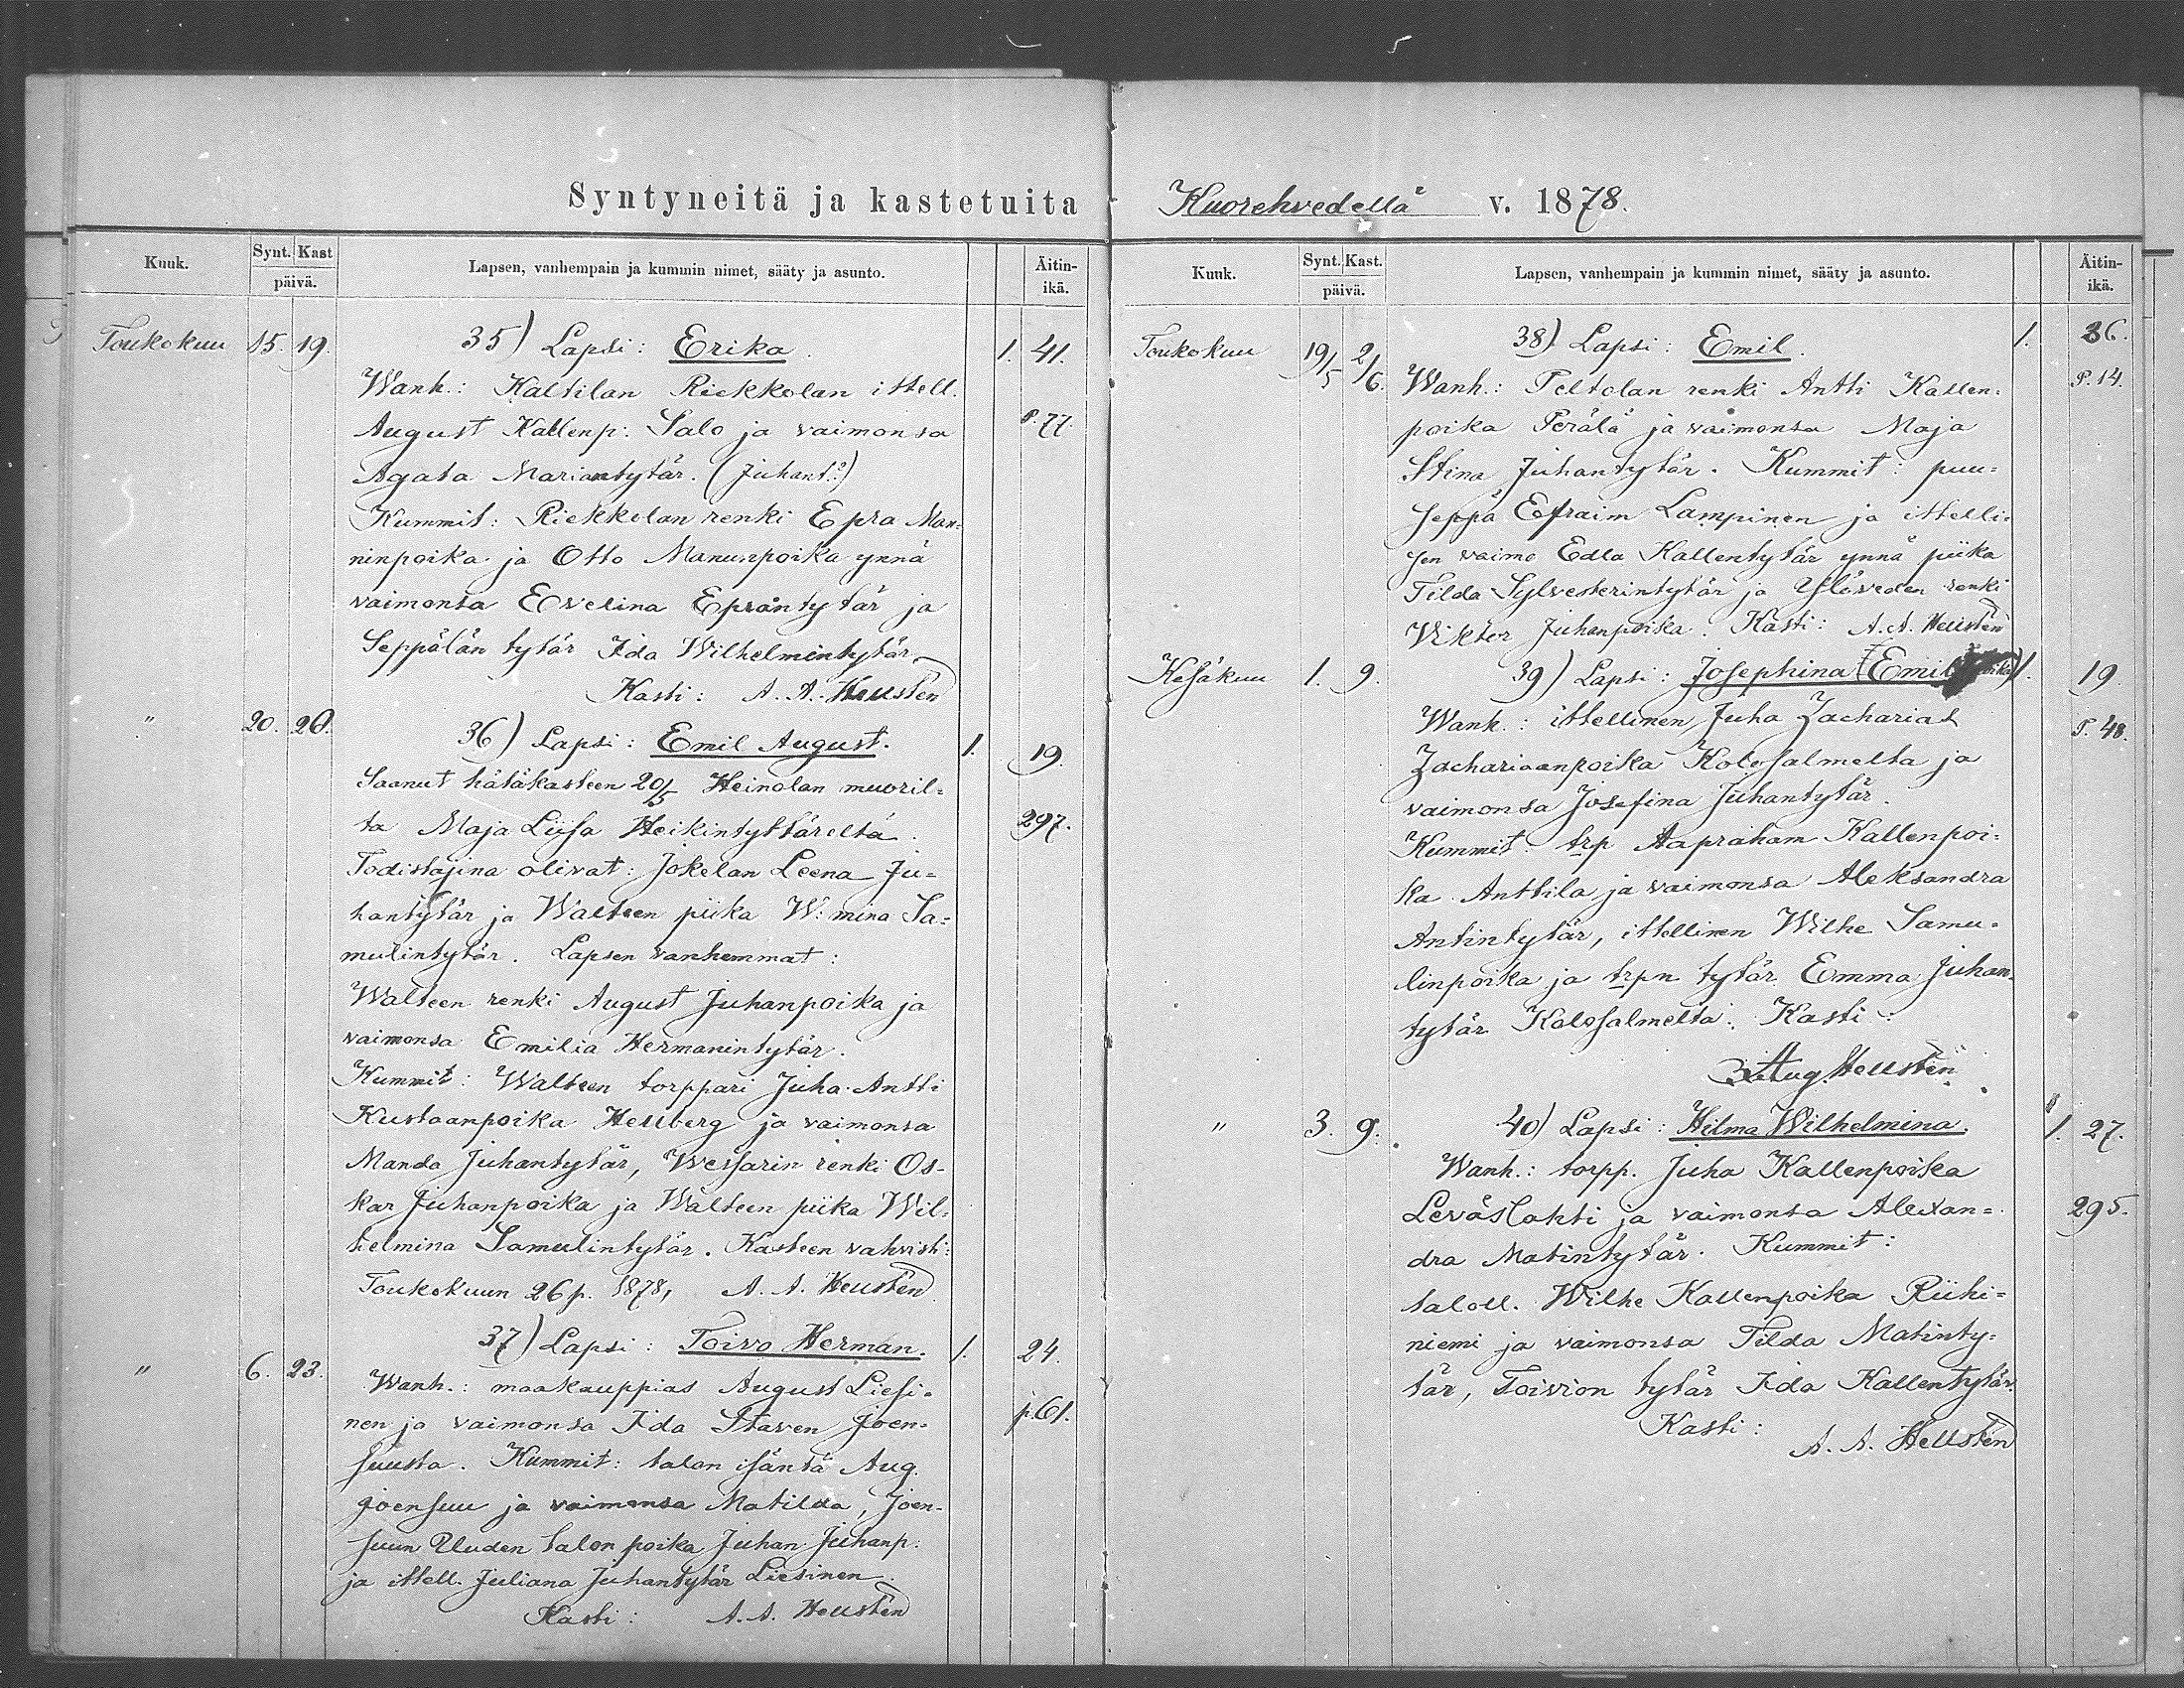 Syntyneitä ja kastetuita
Kuuk. Synt. Kast päivä. Lapsen, vanhempain ja kummin nimet, sääty ja asunto. Äitin-ikä.
Toukokuu 15. 19. 35) Lapsi: Erika. 1. 41.
Wanh.: Kaltilan Riekkolan ittell.
August Kallenp: Salo ja vaimonsa P. 77.
Agata Mariantytär. (Juhant?)
Kummit: Riekkolan renki Epra Man-
ninpoika ja Otto Manunpoika ynnä
vaimonsa Evelina Eprantytär ja
Seppälän tytär Ida Wilhelmintytär.
Kasti: A. A. Hellstén
" 20. 20. 36) Lapsi: Emil August. 1. 19.
Saanut hätäkasteen 20/5 Heinolan muoril-
ta Maja Liisa Heikintyttäreltä. 297.
Todistajina olivat: Jokelan Leena Ju-
hantytär ja Walteen piika W:mina Sa-
mulintytär. Lapsen vanhemmat:
Walteen renki August Juhanpoika ja
vaimonsa Emilia Hermanintytär.
Kummit: Walteen torppari Juha Antti
Kustaanpoika Hellberg ja vaimonsa
Manda Juhantytär, Wessarin renki Os-
kar Juhanpoika ja Walteen piika Wil-
helmina Samulintytär. Kasteen vahvisti:
Toukokuun 26 p. 1878, A. A. Hellstén
37) Lapsi: Toivo Herman. 1. 24.
" 6. 23. Wanh.: maakauppias August Liesi-
nen ja vaimonsa Ida Staven Joen- p. 61.
suusta. Kummit: talon isäntä Aug.
Joensuu ja vaimonsa Matilda, Joen-
suun Uuden talon poika Juhan Juhanp:
ja ittell. Juliana Juhantytär Liesinen.
Kasti: A. A. Hellstén
Kuorehvedellä v. 1878.
Kuuk. Synt. Kast. päivä. Lapsen, vanhempain ja kummin nimet, sääty ja asunto. Äitin-ikä.
Toukokuu 19/5 2/6. 38) Lapsi: Emil. 1. 36.
Wanh.: Peltolan renki Antti Kallen- P. 14.
poika Perälä ja vaimonsa Maja
Stina Juhantytär. Kummit: puu-
seppä Efraim Lampinen ja ittelli-
sen vaimo Edla Kallentytär ynnä piika
Tilda Sylvesterintytär ja Ylöveden renki
Viktor Juhanpoika. Kasti: A. A. Hellstén
Kesäkuu 1. 9. 39) Lapsi: Josephina (Emil 1. 19.
Wanh.: ittellinen Juha Zacharias P. 48.
Zachariaanpoika Kolosalmelta ja
vaimonsa Josefina Juhantytär.
Kummit: trp Aapraham Kallenpoi-
ka Anttila ja vaimonsa Aleksandra
Antintytär, ittellinen Wilhe Samu-
linpoika ja trpn tytär Emma Juhan-
tytär Kolosalmelta. Kasti:
Aug. Hellstén.
" 3. 9. 40) Lapsi: Hilma Wilhelmina. 1. 27.
Wanh.: torpp. Juha Kallenpoika
Leväslahti ja vaimonsa Alexan- 295.
dra Matintytär. Kummit:
taloll. Wilhe Kallenpoika Riihi-
niemi ja vaimonsa Tilda Matinty-
tär, Toivion tytär Ida Kallentytär.
Kasti: A. A. Hellstén